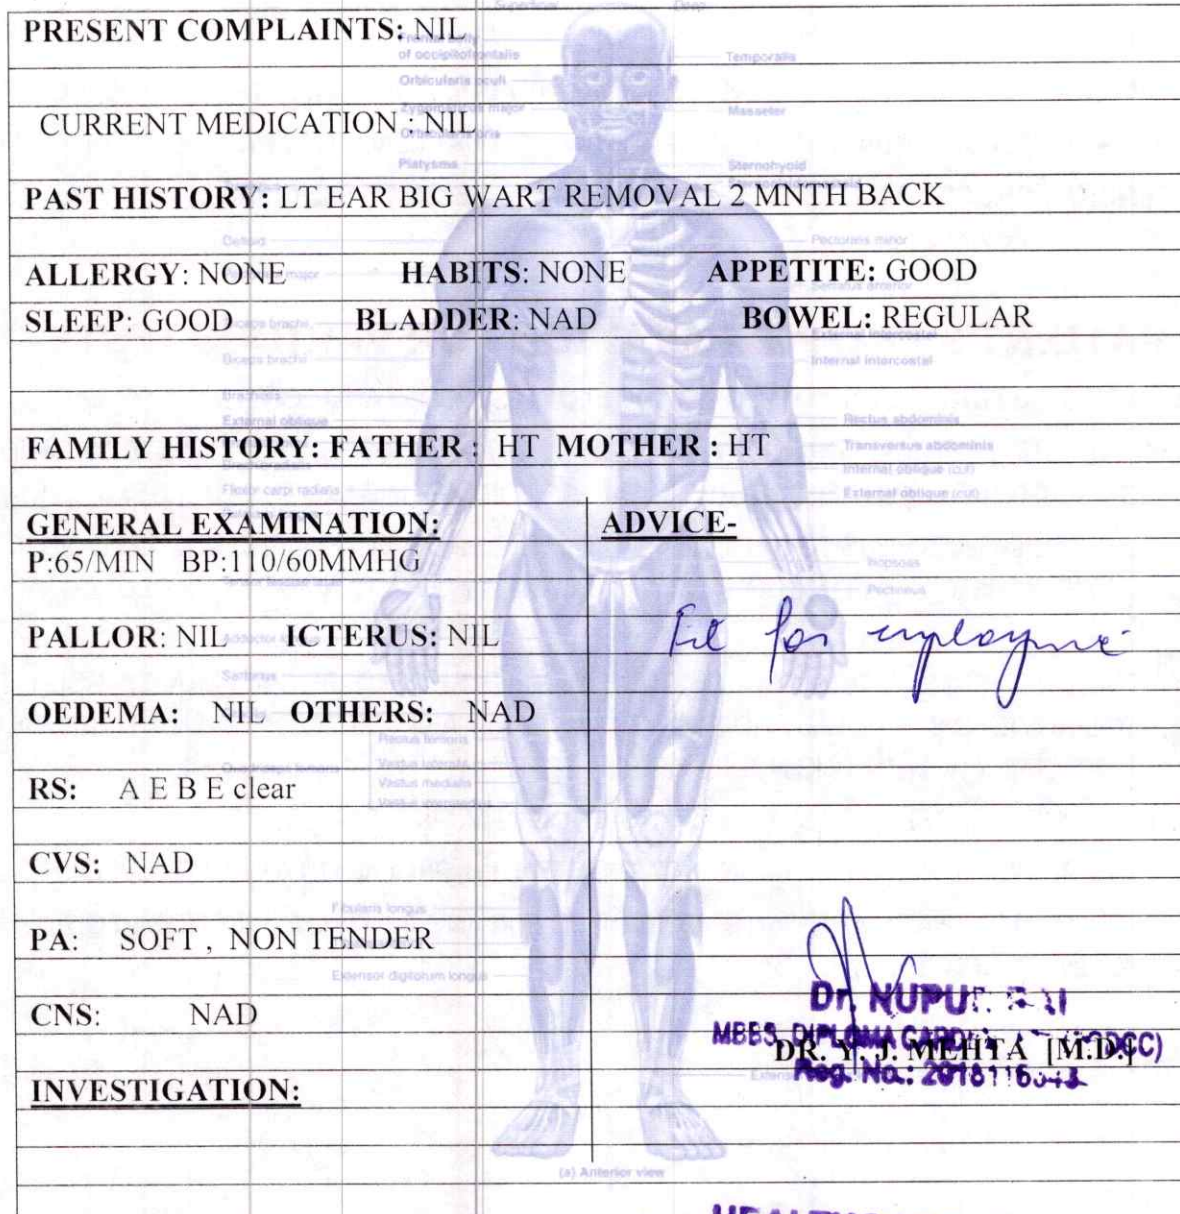 PRESENT COMPLAINTS: NIL
CURRENT MEDICATION : NIL
PAST HISTORY: LT EAR BIG WART REMOVAL 2 MNTH BACK
ALLERGY: NONE HABITS: NONE APPETITE: GOOD
SLEEP: GOOD BLADDER: NAD BOWEL: REGULAR
FAMILY HISTORY: FATHER : HT MOTHER : HT
GENERAL EXAMINATION:
P:65/MIN BP:110/60MMHG
PALLOR: NIL ICTERUS: NIL
OEDEMA: NIL OTHERS: NAD
RS: A E B E clear
CVS: NAD
PA: SOFT , NON TENDER
CNS: NAD
INVESTIGATION:
ADVICE-
Fit for
Dr. NUPUR
MBBS, DIPLOMA
DR. Y. J. MEHTA [M.D.]
Reg. No.:
Superficial Deep
of occipitofrontalis
Orbicularis oculi
Zygomaticus major
Platysma
Temporalis
Masseter
Sternohyoid
Deltoid
Pectoralis minor
Serratus anterior
Biceps brachii
External intercostal
Internal intercostal
Brachialis
External oblique
Rectus abdominis
Transversus abdominis
Internal oblique (cut)
External oblique (cut)
Flexor carpi radialis
Iliopsoas
Pectineus
Sartorius
Rectus femoris
Vastus lateralis
Vastus medialis
Fibularis longus
Extensor digitorum longus
(a) Anterior view